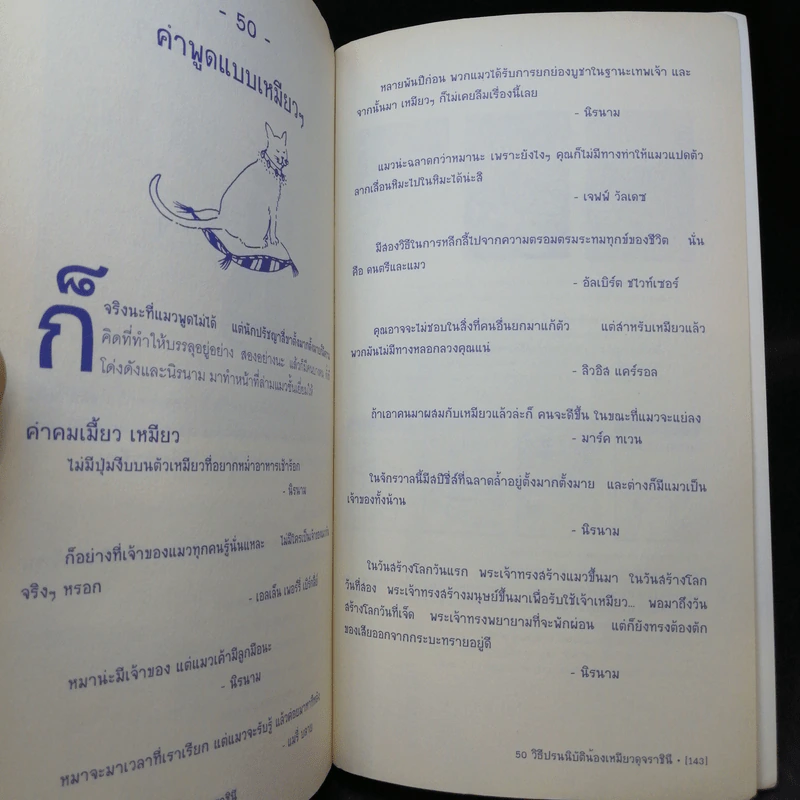 - 50 -
คำพูดแบบเหมียวๆ
ก็
จริงนะที่แมวพูดไม่ได้ แต่นักปรัชญาสี่ขาตั้งมากตั้งมาย
คิดที่ทำให้บรรลุอยู่อย่าง สองอย่างนะ แล้วก็มี
โด่งดังและนิรนาม มาทำหน้าที่ล่ามแมวชั้นเยี่ยมให้
คำคมเมี้ยว เหมียว
ไม่มีปุ่มงีบบนตัวเหมียวที่อยากหม่ำอาหารเช้าร้อก
- นิรนาม
ก็อย่างที่เจ้าของแมวทุกคนรู้นั่นแหละ ไม่มีใครเป็นเจ้าของแมว
จริงๆ หรอก
- เอลเล็น เพอร์รี่ เบิร์กลีย์
หมาน่ะมีเจ้าของ แต่แมวเค้ามีลูกมือนะ
- นิรนาม
หมาจะมาเวลาที่เราเรียก แต่แมวจะรับรู้ แล้วค่อยมาหาทีหลัง
- แมรี่ บลาย
หลายพันปีก่อน พวกแมวได้รับการยกย่องบูชาในฐานะเทพเจ้า และ
จากนั้นมา เหมียวๆ ก็ไม่เคยลืมเรื่องนี้เลย
- นิรนาม
แมวน่ะฉลาดกว่าหมานะ เพราะยังไงๆ คุณก็ไม่มีทางทำให้แมวแปดตัว
ลากเลื่อนหิมะไปในหิมะได้น่ะสิ
- เจฟฟ์ วัลเดซ
มีสองวิธีในการหลีกลี้ไปจากความตรอมตรมระทมทุกข์ของชีวิต นั่น
คือ ดนตรีและแมว
- อัลเบิร์ต ชไวท์เซอร์
คุณอาจจะไม่ชอบในสิ่งที่คนอื่นยกมาแก้ตัว แต่สำหรับเหมียวแล้ว
พวกมันไม่มีทางหลอกลวงคุณแน่
- ลิวอิส แคร์รอล
ถ้าเอาคนมาผสมกับเหมียวแล้วล่ะก็ คนจะดีขึ้น ในขณะที่แมวจะแย่ลง
- มาร์ค ทเวน
ในจักรวาลนี้มีสปีชี่ส์ที่ฉลาดล้ำอยู่ตั้งมากตั้งมาย และต่างก็มีแมวเป็น
เจ้าของทั้งน้าน
- นิรนาม
ในวันสร้างโลกวันแรก พระเจ้าทรงสร้างแมวขึ้นมา ในวันสร้างโลก
วันที่สอง พระเจ้าทรงสร้างมนุษย์ขึ้นมาเพื่อรับใช้เจ้าเหมียว... พอมาถึงวัน
สร้างโลกวันที่เจ็ด พระเจ้าทรงพยายามที่จะพักผ่อน แต่ก็ยังทรงต้องตัก
ของเสียออกจากกระบะทรายอยู่ดี
- นิรนาม
50 วิธีปรนนิบัติน้องเหมียวดุจราชินี • [143]